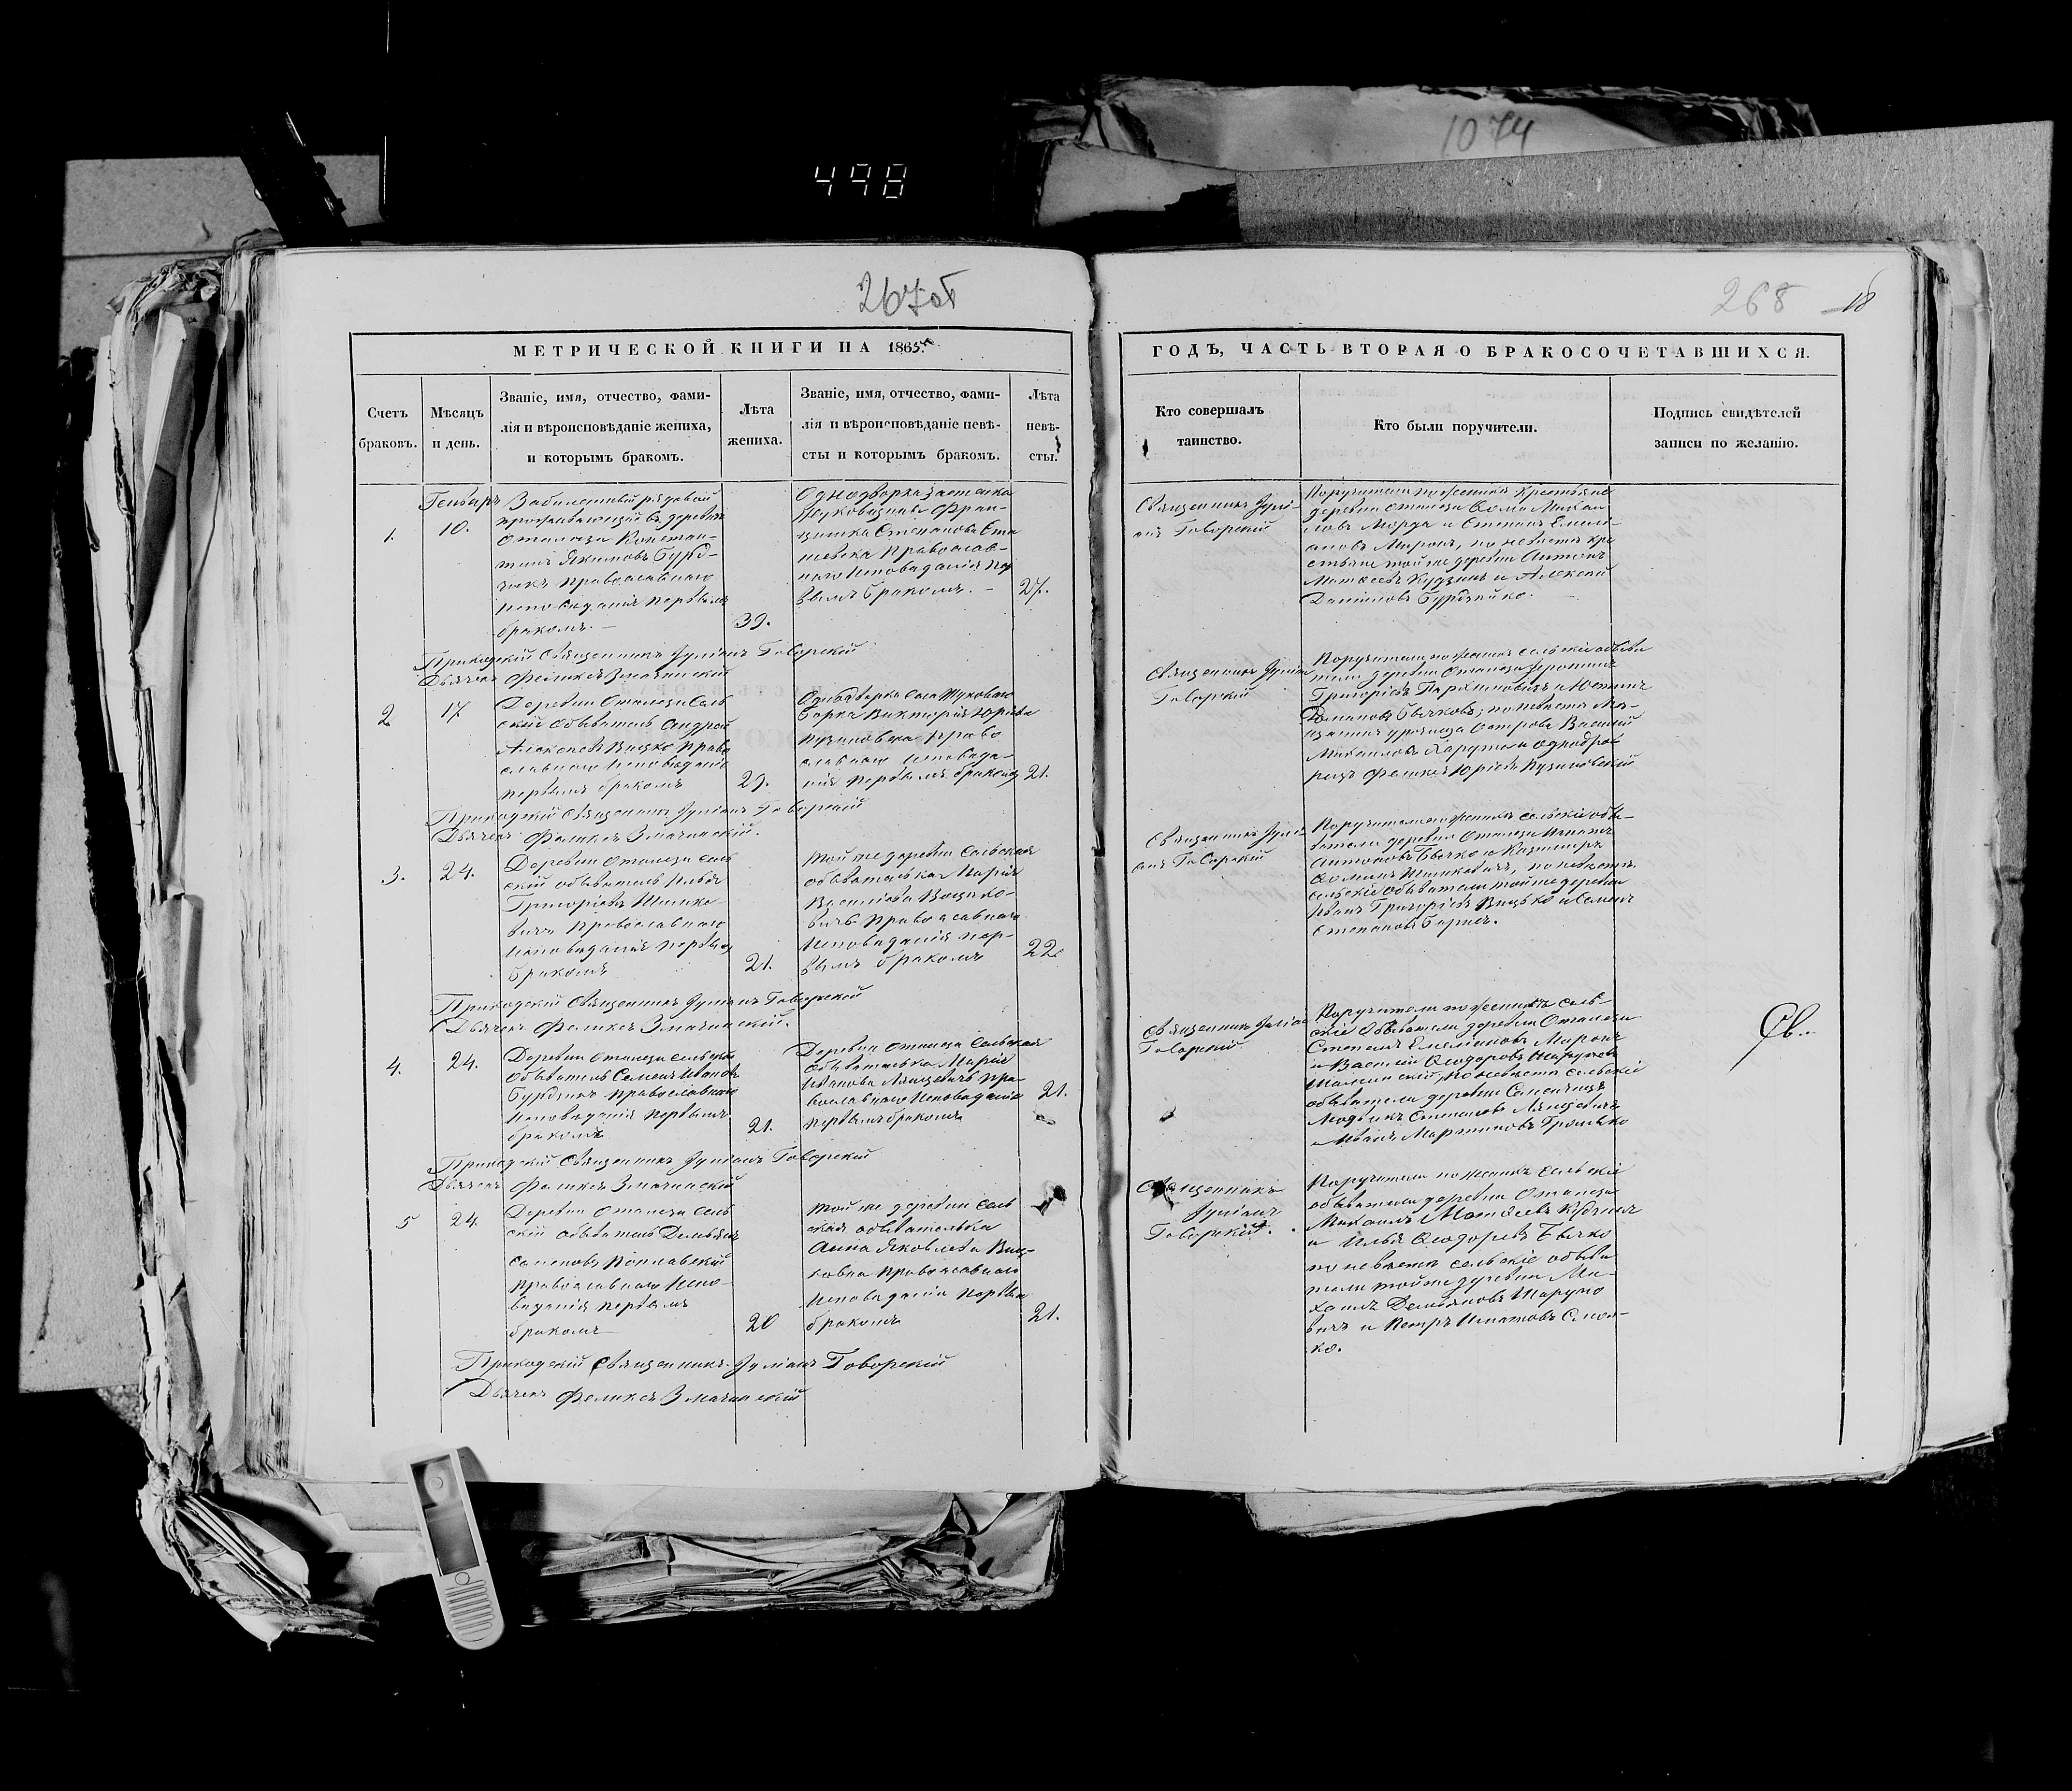 1074
498
267об
268
18
МЕТРИЧЕСКОЙ КНИГИ НА 1865
ГОДЪ, ЧАСТЬ ВТОРАЯ О БРАКОСОЧЕТАВШИХСЯ.
Счетъ
браковъ.
Мѣсяцъ
и день.
Званіе, имя, отчество, фами-
лія и вѣроисповѣданіе жениха,
и которымъ бракомъ.
Лѣта
жениха.
Званіе, имя, отчество, фами-
лія и вѣроисповѣданіе невѣ-
сты и которымъ бракомъ.
Лѣта
невѣ-
сты.
Кто совершалъ
таинство.
Кто были поручители.
Подпись свидѣтелей
записи по желанію.
1.
Генваръ
10.
проживающій въ деревнѣ
Оталези Констан-
тинъ Якимовъ
православнаго
исповеданія первымъ
бракомъ.
39.
Однодворка
Степанова
православ-
наго исповеданія пер
вымъ бракомъ.
27.
Священникъ Гули-
анъ Говорскій
Поручители по женихѣ крестьяне
деревни Оталези Ѳома Михаи
ловъ и Степанъ Емели-
ановъ Миронъ, по невѣстѣ кре
стьяне той же деревни Антонъ
Матѳеевъ Кудзинъ и Алексей
Даниловъ
Приходскій Священникъ Гуліанъ Говорскій
Дьячекъ Феликсъ Змачинскій
2
17
Деревни Оталези Сель
скій обыватель Андрей
Алексеевъ Вицко право
славнаго исповеданія
первымъ бракомъ
29.
Викторія Юріева
право
славнаго исповеда-
нія первымъ бракомъ
21.
Священникъ Гуліан
Говорскій
Поручители по женихѣ сельскіе обыва
тели деревни Оталези
Григоріевъ и Юстинъ
Романовъ Бычковъ; по невѣстѣ
Василій
Михаиловъ и однодво
рецъ Феликсъ Юріевъ
Приходскій Священникъ Гуліанъ Говорскій
Дьячекъ Феликсъ Змачинскій.
3.
24.
Деревни Оталези сель
скій обыватель Илья
Григоріевъ
православнаго
исповеданія первым
бракомъ
21.
той же деревни сельская
обывателька Марія
Василіева
православнаго
исповеданія пер-
вымъ бракомъ
22.
Священникъ Гулі
анъ Говорскій
Поручители по женихѣ сельскіе обы-
ватели деревни Оталези Игнатъ
Антоновъ Бычко и Казимиръ
по невѣстѣ
сельскіе обыватели той же деревни
Иванъ Григоріевъ Вицько и Семенъ
Степановъ
Приходскій Священникъ Гуліанъ Говорскій
Дьячекъ Феликсъ Змачинскій.
4.
24.
Деревни Оталези сельскій
обыватель Семенъ Ивановъ
православнаго
исповеданія первымъ
бракомъ
21.
Деревни Оталези сельская
обывателька Марія
Иванова Ляшцевичъ пра-
вославнаго исповеданія
первымъ бракомъ
21.
Священникъ Гуліан
Говорскій
Поручители по женихѣ сель-
скіе обыватели деревни Оталези
Степанъ Емеліановъ Миронъ
и Василій Ѳеодоровъ
по невѣстѣ сельскіе
обыватели деревни
Степановъ Ляшцевичъ
и Иванъ Мартиновъ Громыко
Св.
Приходскій Священникъ Гуліанъ Говорскій
Дьячекъ Феликсъ Змачинскій
5
24.
Деревни Оталези сель
скій обыватель Демьянъ
Семеновъ Поплавскій
православнаго испо-
веданія первымъ
бракомъ
20
той же деревни сель
ская обывателька
Анна Яковлева Виц-
ковна православнаго
исповеданія первым
бракомъ
21.
Священникъ
Гуліанъ
Говорскій.
Поручители по женихѣ сельскіе
обыватели деревни Оталези
Михаилъ Матѳеевъ Кудзинъ
и Илья Ѳеодоровъ Бычко
по невѣстѣ сельскіе обыва
тели той же деревни Ми-
хаилъ Демьяновъ Шаруно
вичъ и Петръ Игнатовъ
ко.
Приходскій Священникъ Гуліанъ Говорскій
Дьячекъ Феликсъ Змачинскій